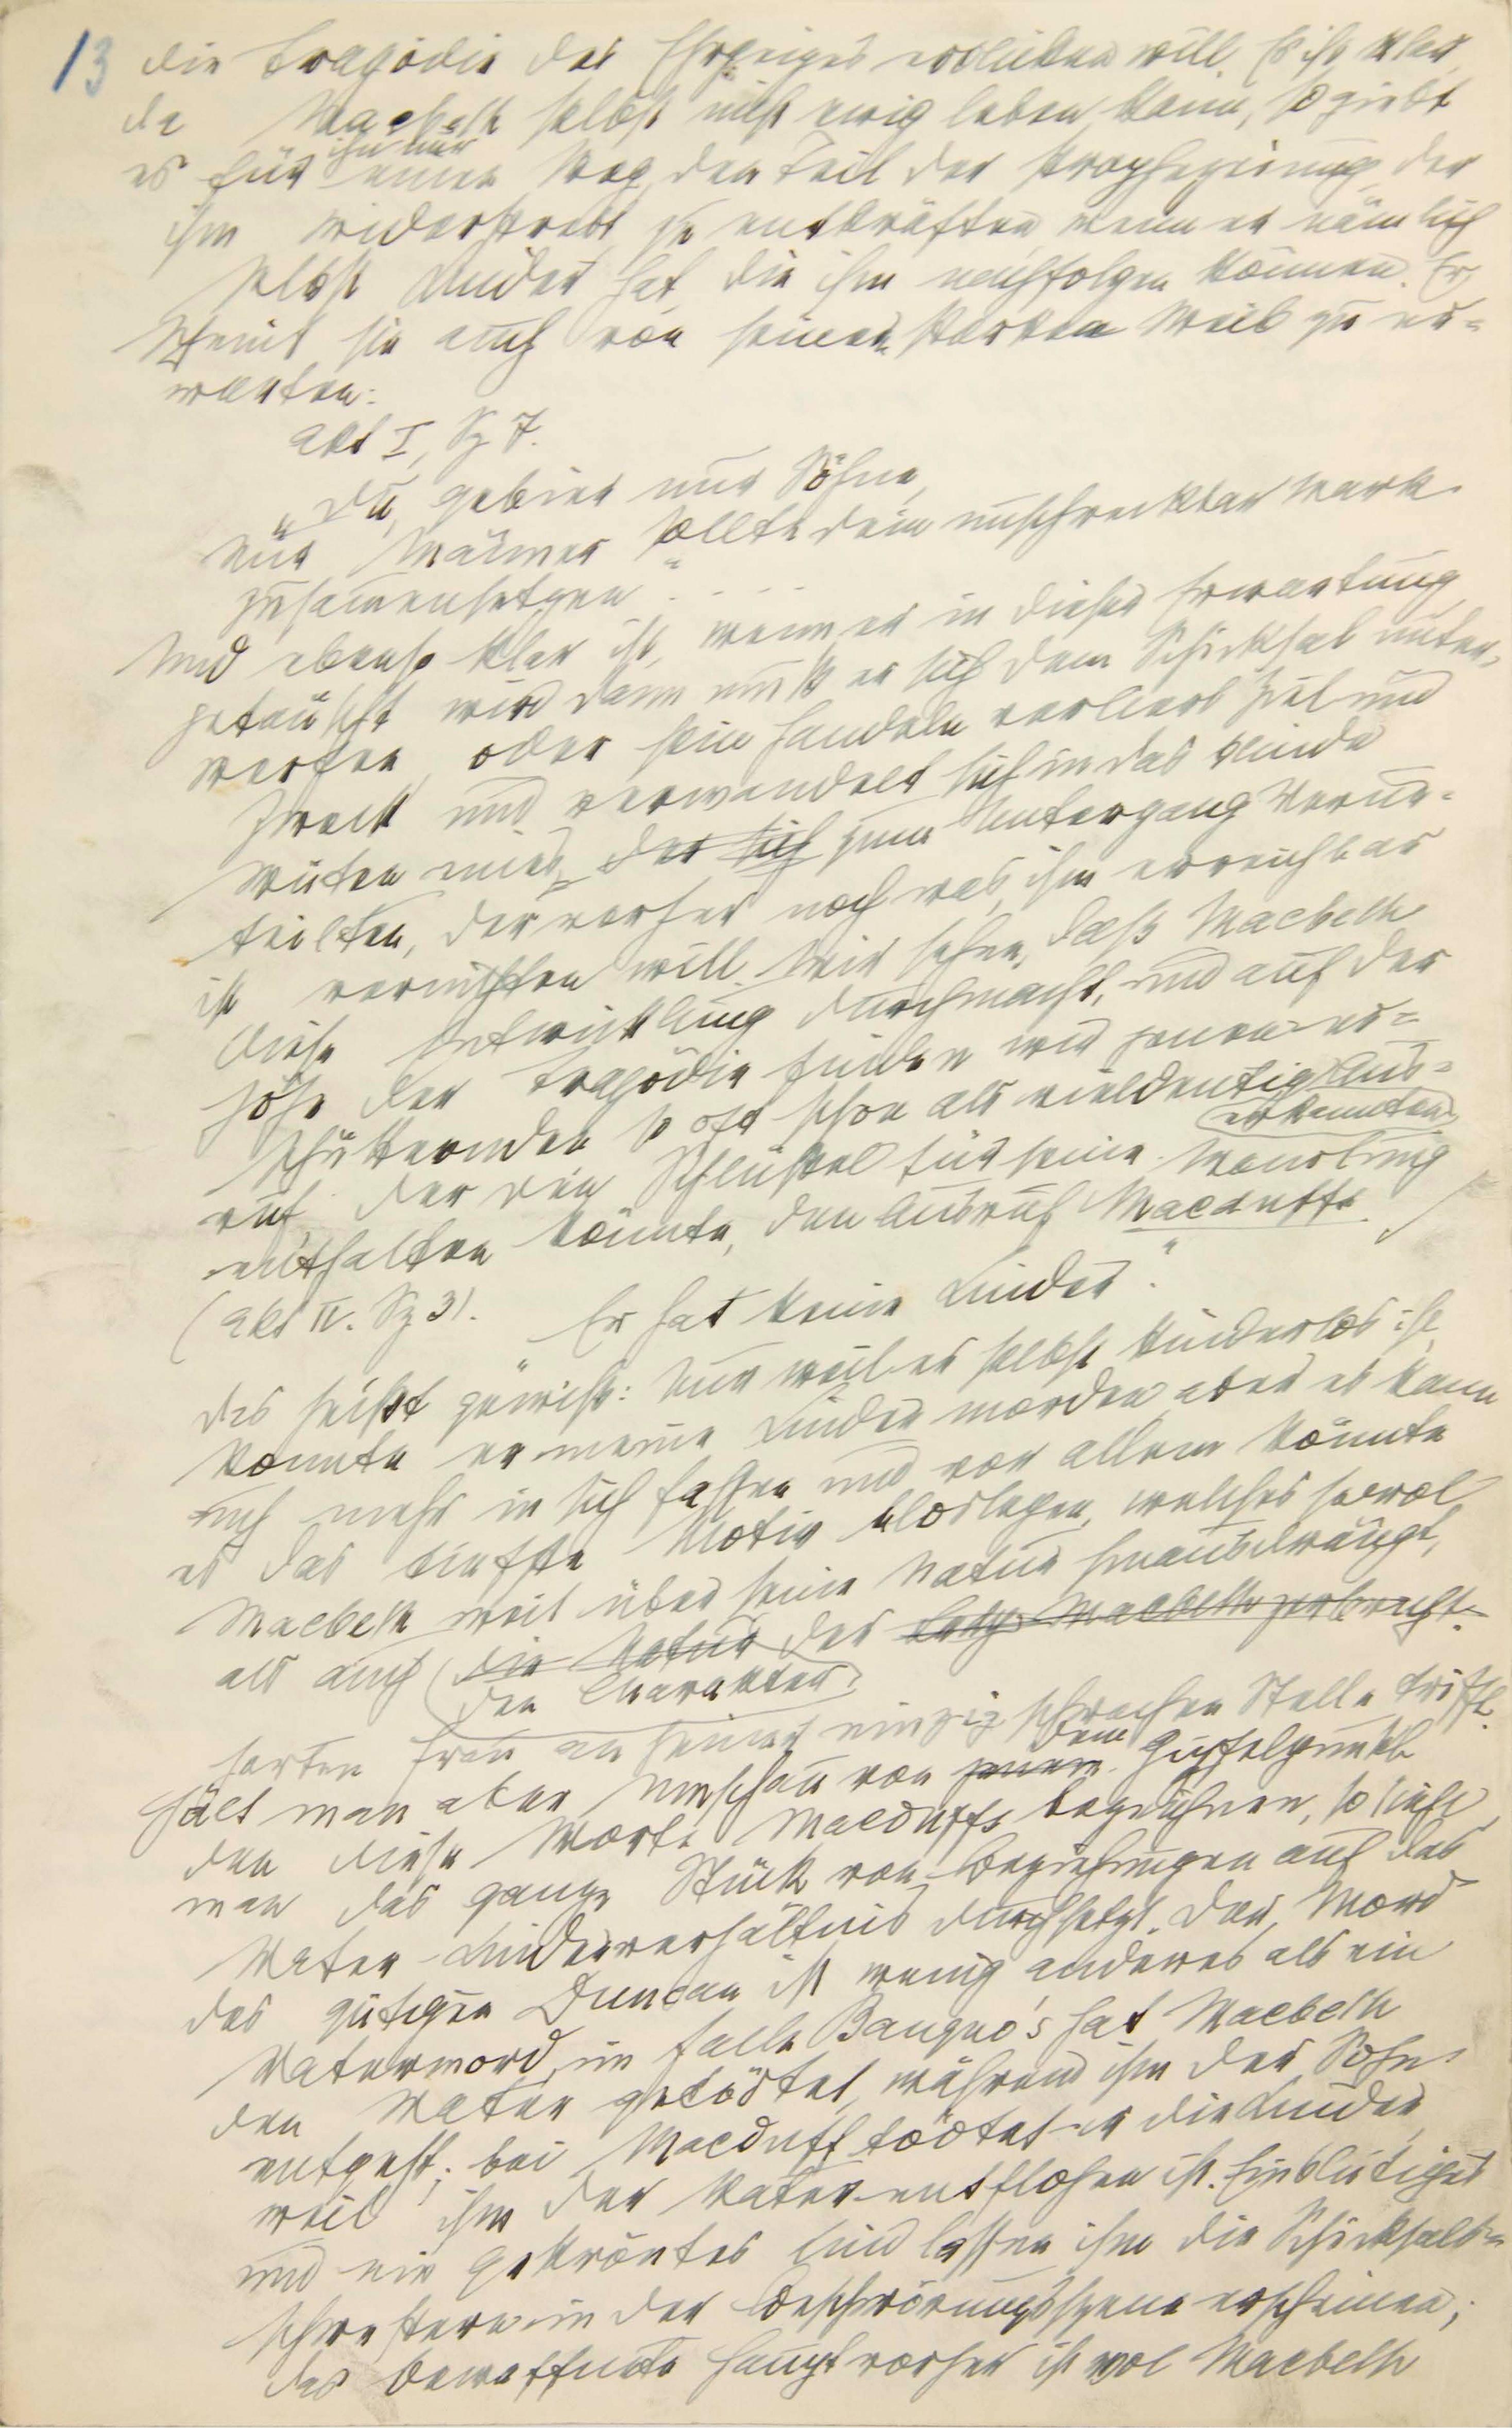 13
die Tragödie des Ehrgeizes erblicken will. Es ist klar,
da Macbeth selbst nicht ewig leben kann, so giebt
es für ihn nur einen Weg, den Teil der Prophezeiung, der
ihm widerstrebt zu entkräften, wenn er nämlich
selbst Kinder hat, die ihm nachfolgen können. Er
scheint sie auch von seinem starken Weib zu er=
warten:
Akt I, Sz 7.
„Du, gebier nur Söhne,
Nur Männer sollte dein unschreckbar Mark
zusammensetzen“ . . . .
Und ebenso klar ist, wenn er in dieser Erwartung
getäuscht wird, dann muß er sich dem Schicksal unter=
werfen, oder sein Handeln verliert Ziel und
Zweck und verwandelt sich in das blinde
Wüten eines der sich zum Untergang Verur=
teilten, der vorher noch was ihm erreichbar
ist, vernichten will. Wir sehen, daß Macbeth
diese Entwicklung durchmacht, und auf der
Höhe der Tragödie finden wir jenen er=
schütternden so oft schon als vieldeutig erkannten Aus=
ruf der den Schlüssel für seine Wandlung
enthalten könnte, den Ausruf Macduffs.
(Akt IV. Sz 3). „Er hat keine Kinder“.
Das heißt gewiß: Nur weil er selbst kinderlos ist,
konnte er meine Kinder morden aber es kann
auch mehr in sich fassen und vor allem könnte
es das tiefste Motiv bloslegen, welches sowol
Macbeth weit über seine Natur hinausdrängt,
als auch die Natur der Lady Macbeth zerbricht.
den Charakter
harten Frau an seiner einzig schwachen Stelle trifft.
Hält man aber Umschau von jenem dem Gipfelpunkt
den diese Worte Macduffs bezeichnen, so sieht
man das ganze Stück von Beziehungen auf das
Vater-Kinderverhältnis durchsetzt. Der Mord
des gütigen Duncan ist wenig anderes als ein
Vatermord, im Falle Banquo's hat Macbeth
den Vater getödtet, während ihm der Sohn
entgeht; bei Macduff tödtet er die Kinder,
weil ihm der Vater entflohen ist. Ein blutiges
und ein gekröntes Kind lassen ihm die Schicksals=
schwestern in der Beschwörungsszene erscheinen;
das bewaffnete Haupt vorher ist wol Macbeth